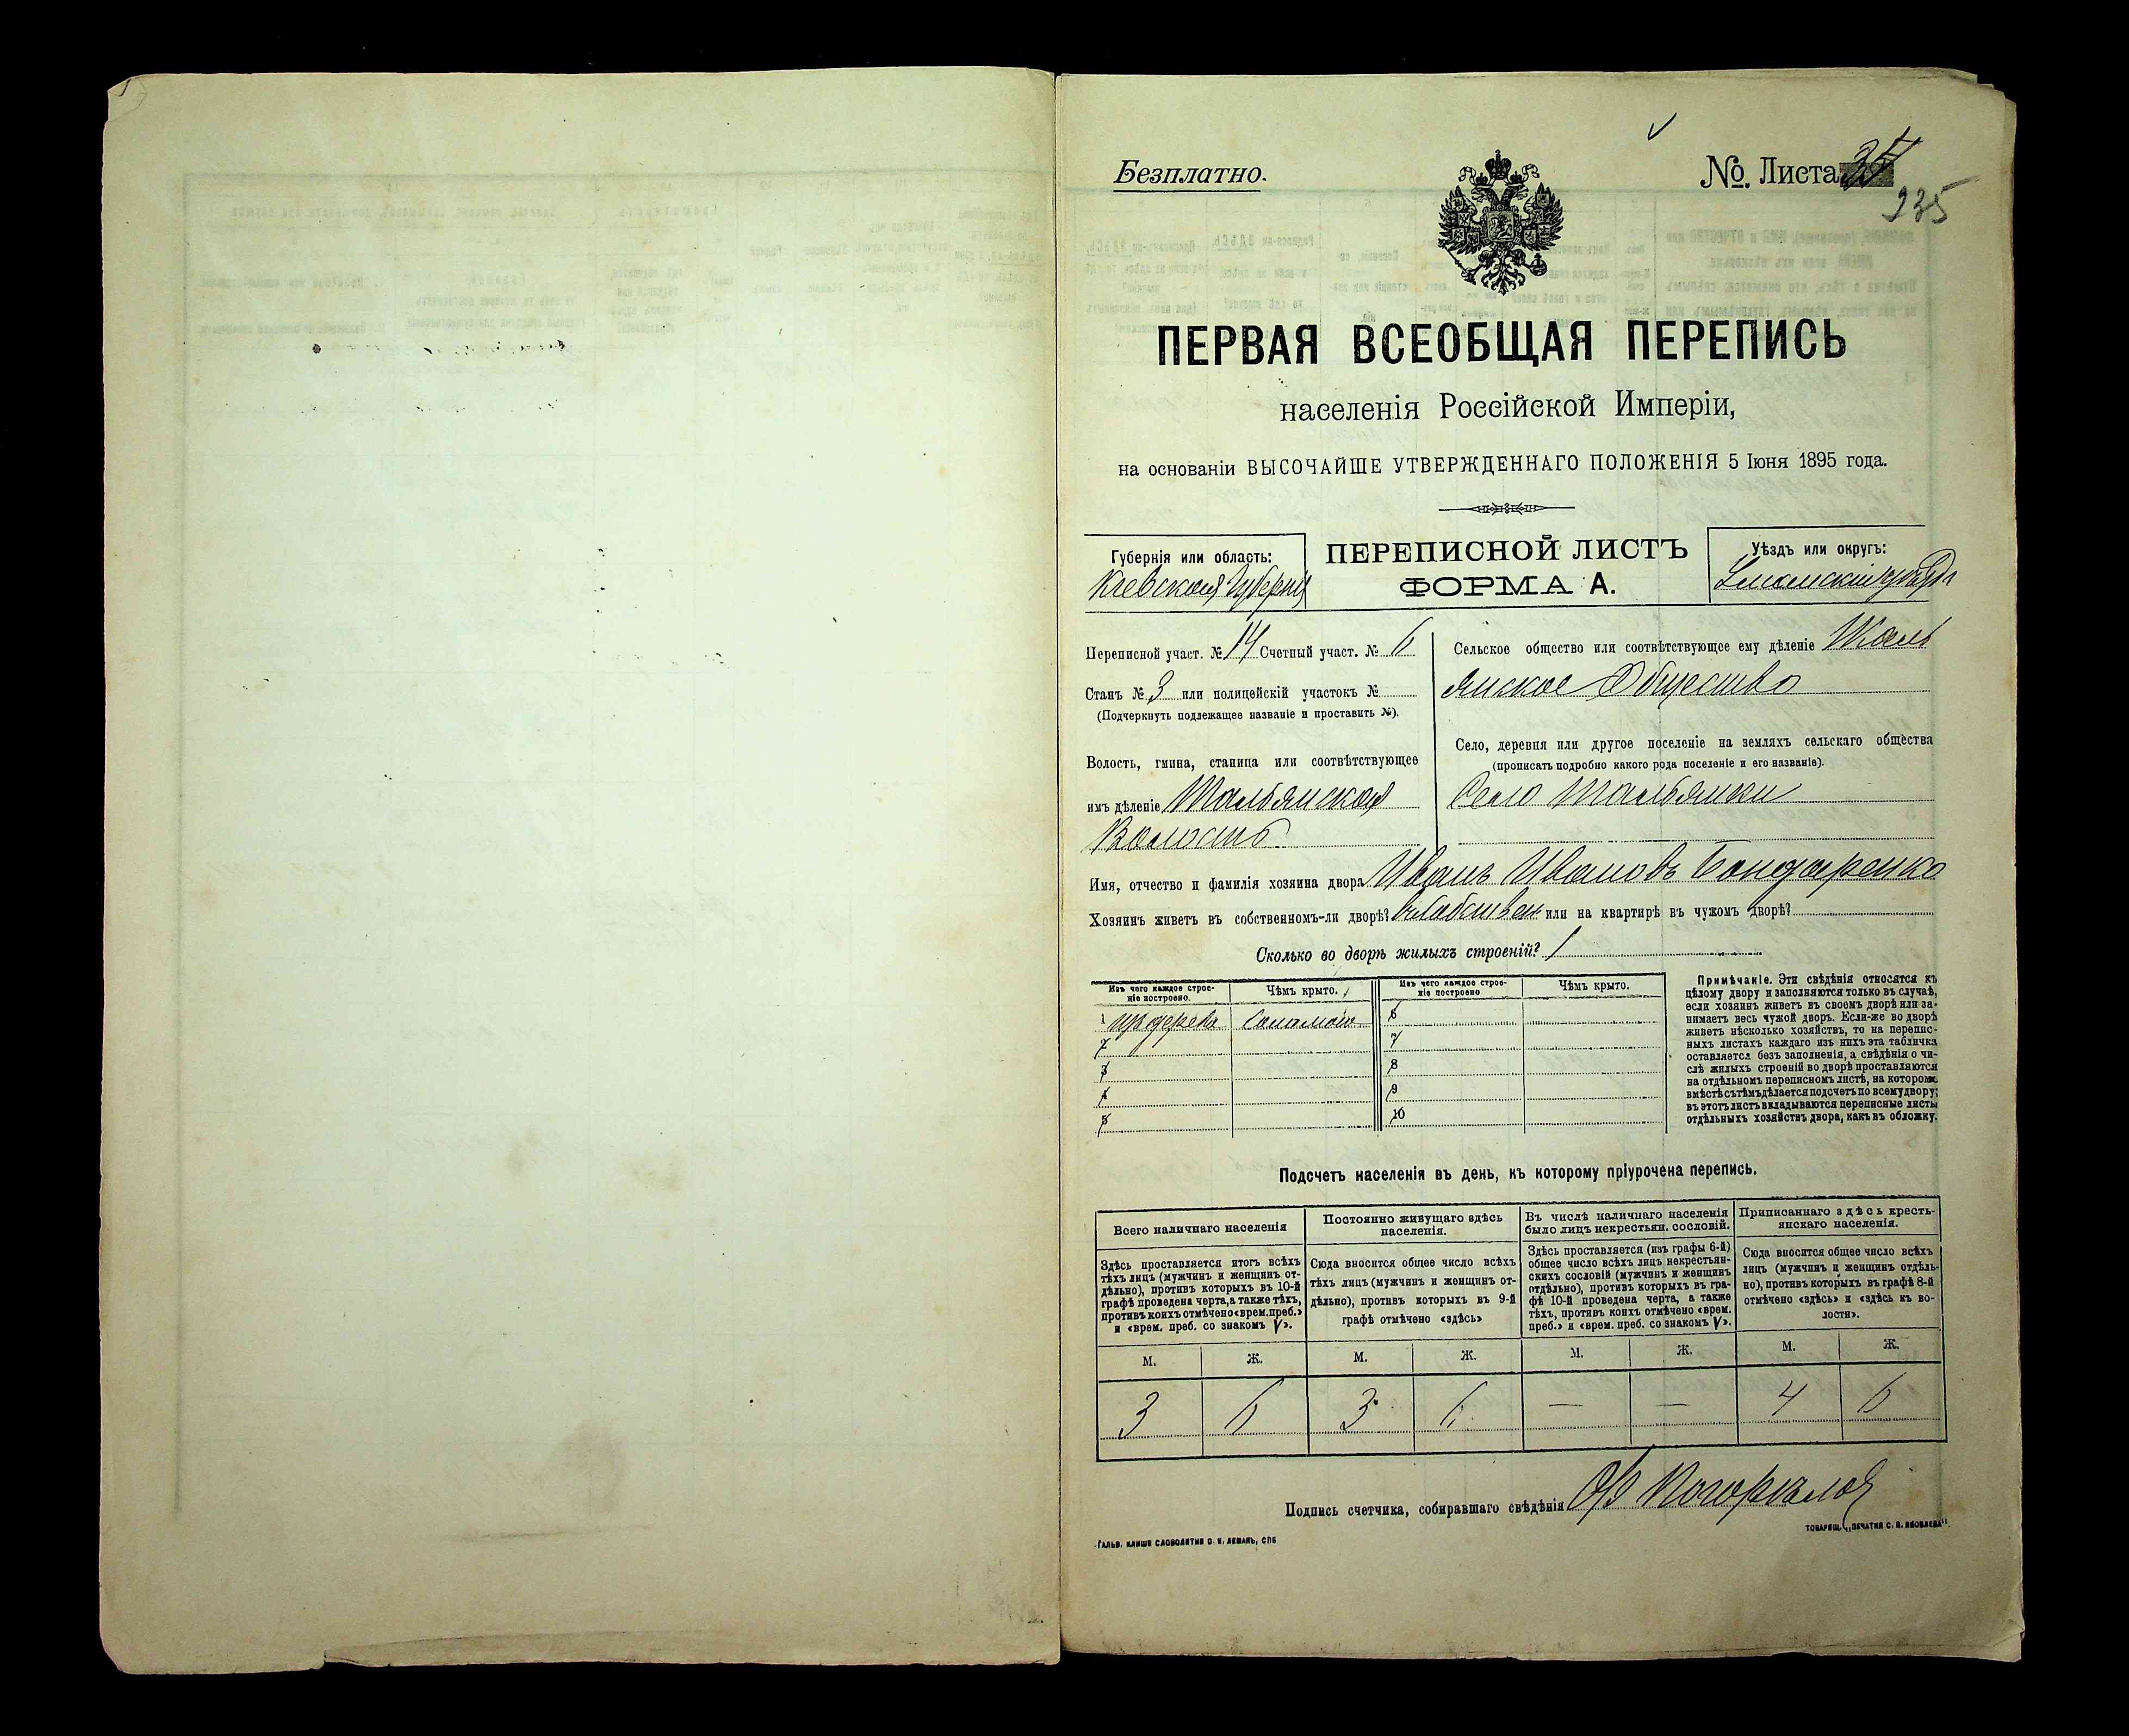 Безплатно.
№ Листа
235
ПЕРВАЯ ВСЕОБЩАЯ ПЕРЕПИСЬ
населенія Россійской Имперіи,
на основаніи ВЫСОЧАЙШЕ УТВЕРЖДЕННАГО ПОЛОЖЕНІЯ 5 Іюня 1895 года.
Губернія или область:
Кіевская Губернія
ПЕРЕПИСНОЙ ЛИСТЪ
ФОРМА А.
Уѣздъ или округъ:
Уманскій уѣздъ
Переписной участ. № 14 Счетный участ. № 6
Станъ № 3 или полицейскій участокъ №
(Подчеркнуть подлежащее названіе и проставить №).
Волость, гмина, станица или соотвѣтствующее
имъ дѣленіе Тальянская
Волость
Сельское общество или соотвѣтствующее ему дѣленіе Таль
янское Общество
Село, деревня или другое поселеніе на земляхъ сельскаго общества
(прописать подробно какого рода поселеніе и его названіе).
Село Тальянки
Имя, отчество и фамилія хозяина двора Иванъ Ивановъ Бондаренко
Хозяинъ живетъ въ собственномъ-ли дворѣ? въ собствен или на квартирѣ въ чужомъ дворѣ?
Сколько во дворѣ жилыхъ строеній? 1
Изъ чего каждое строе-
ніе построено.
Чѣмъ крыто.
Изъ чего каждое строе-
ніе построено
Чѣмъ крыто.
1 изъ дерева соломою
2
3
4
5
6
7
8
9
10
Примѣчаніе. Эти свѣдѣнія относятся къ
цѣлому двору и заполняются только въ случаѣ,
если хозяинъ живетъ въ своемъ дворѣ или за-
нимаетъ весь чужой дворъ. Если-же во дворѣ
живетъ нѣсколько хозяйствъ, то на перепис-
ныхъ листахъ каждаго изъ нихъ эта табличка
оставляется безъ заполненія, а свѣдѣнія о чи-
слѣ жилыхъ строеній во дворѣ проставляются
на отдѣльномъ переписномъ листѣ, на которомъ
вмѣстѣ съ тѣмъ дѣлается подсчетъ по всему двору;
въ этотъ листъ вкладываются переписные листы
отдѣльныхъ хозяйствъ двора, какъ въ обложку.
Подсчетъ населенія въ день, къ которому пріурочена перепись.
Всего наличнаго населенія
Здѣсь проставляется итогъ всѣхъ
тѣхъ лицъ (мужчинъ и женщинъ от-
дѣльно), противъ которыхъ въ 10-й
графѣ проведена черта, а также тѣхъ,
противъ коихъ отмѣчено «врем. преб.»
и «врем. преб. со знакомъ V».
Постоянно живущаго здѣсь
населенія.
Сюда вносится общее число всѣхъ
тѣхъ лицъ (мужчинъ и женщинъ от-
дѣльно), противъ которыхъ въ 9-й
графѣ отмѣчено «здѣсь»
Въ числѣ наличнаго населенія
было лицъ некрестьян. сословій.
Здѣсь проставляется (изъ графы 6-й)
общее число всѣхъ лицъ некрестьян-
скихъ сословій (мужчинъ и женщинъ
отдѣльно), противъ которыхъ въ гра-
фѣ 10-й проведена черта, а также
тѣхъ, противъ коихъ отмѣчено «врем.
преб.» и «врем. преб. со знакомъ V».
Приписаннаго здѣсь кресть-
янскаго населенія.
Сюда вносится общее число всѣхъ
лицъ (мужчинъ и женщинъ отдѣль-
но), противъ которыхъ въ графѣ 8-й
отмѣчено «здѣсь» и «здѣсь къ во-
лости».
М. Ж. М. Ж. М. Ж. М. Ж.
3 6 3 6 — — 4 6
Подпись счетчика, собиравшаго свѣдѣнія
ГАЛЬВ. КЛИШЕ СЛОВОЛИТНИ О. И. ЛЕМАНЪ, СПБ
ТОВАРИЩ. „ПЕЧАТНЯ С. П. ЯКОВЛЕВА“.